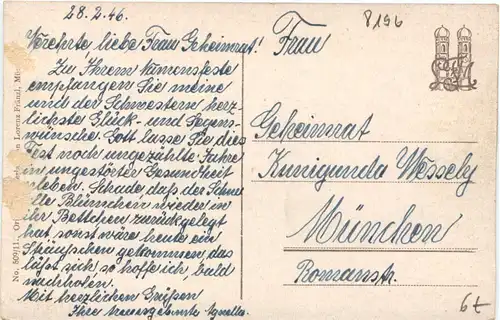 28.2.46.
Verehrte liebe Frau Geheimrat!
Zu Ihrem Namensfeste
empfangen Sie meine
und der Schwestern herz-
lichste Glück- und Segens-
wünsche. Gott lasse Sie dies
Fest noch ungezählte Jahre
in ungestörter Gesundheit
erleben. Schade daß der Schnee
die Blümchen wieder in
ihr Bettchen zurückgelegt
hat, sonst wäre heute ein
Sträußchen gekommen das
läßt sich so hoffe ich, bald
nachholen.
Mit herzlichen Grüßen
Ihre
8196
Frau
Geheimrat
Kunigunda Wessely
München
Romanstr.
67
No. 809/11.
Lorenz Fränzl, Mü